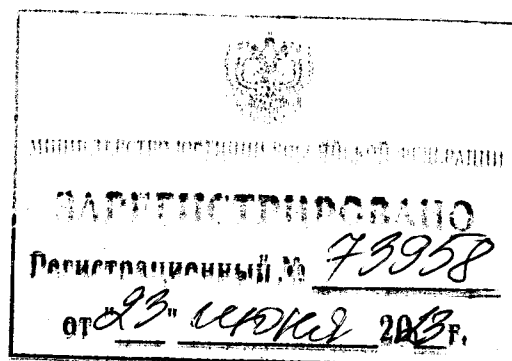 МИНИСТЕРСТВО ЮСТИЦИИ РОССИЙСКОЙ ФЕДЕРАЦИИ
ЗАРЕГИСТРИРОВАНО
Регистрационный № 73958
от "23" июня 2023 г.